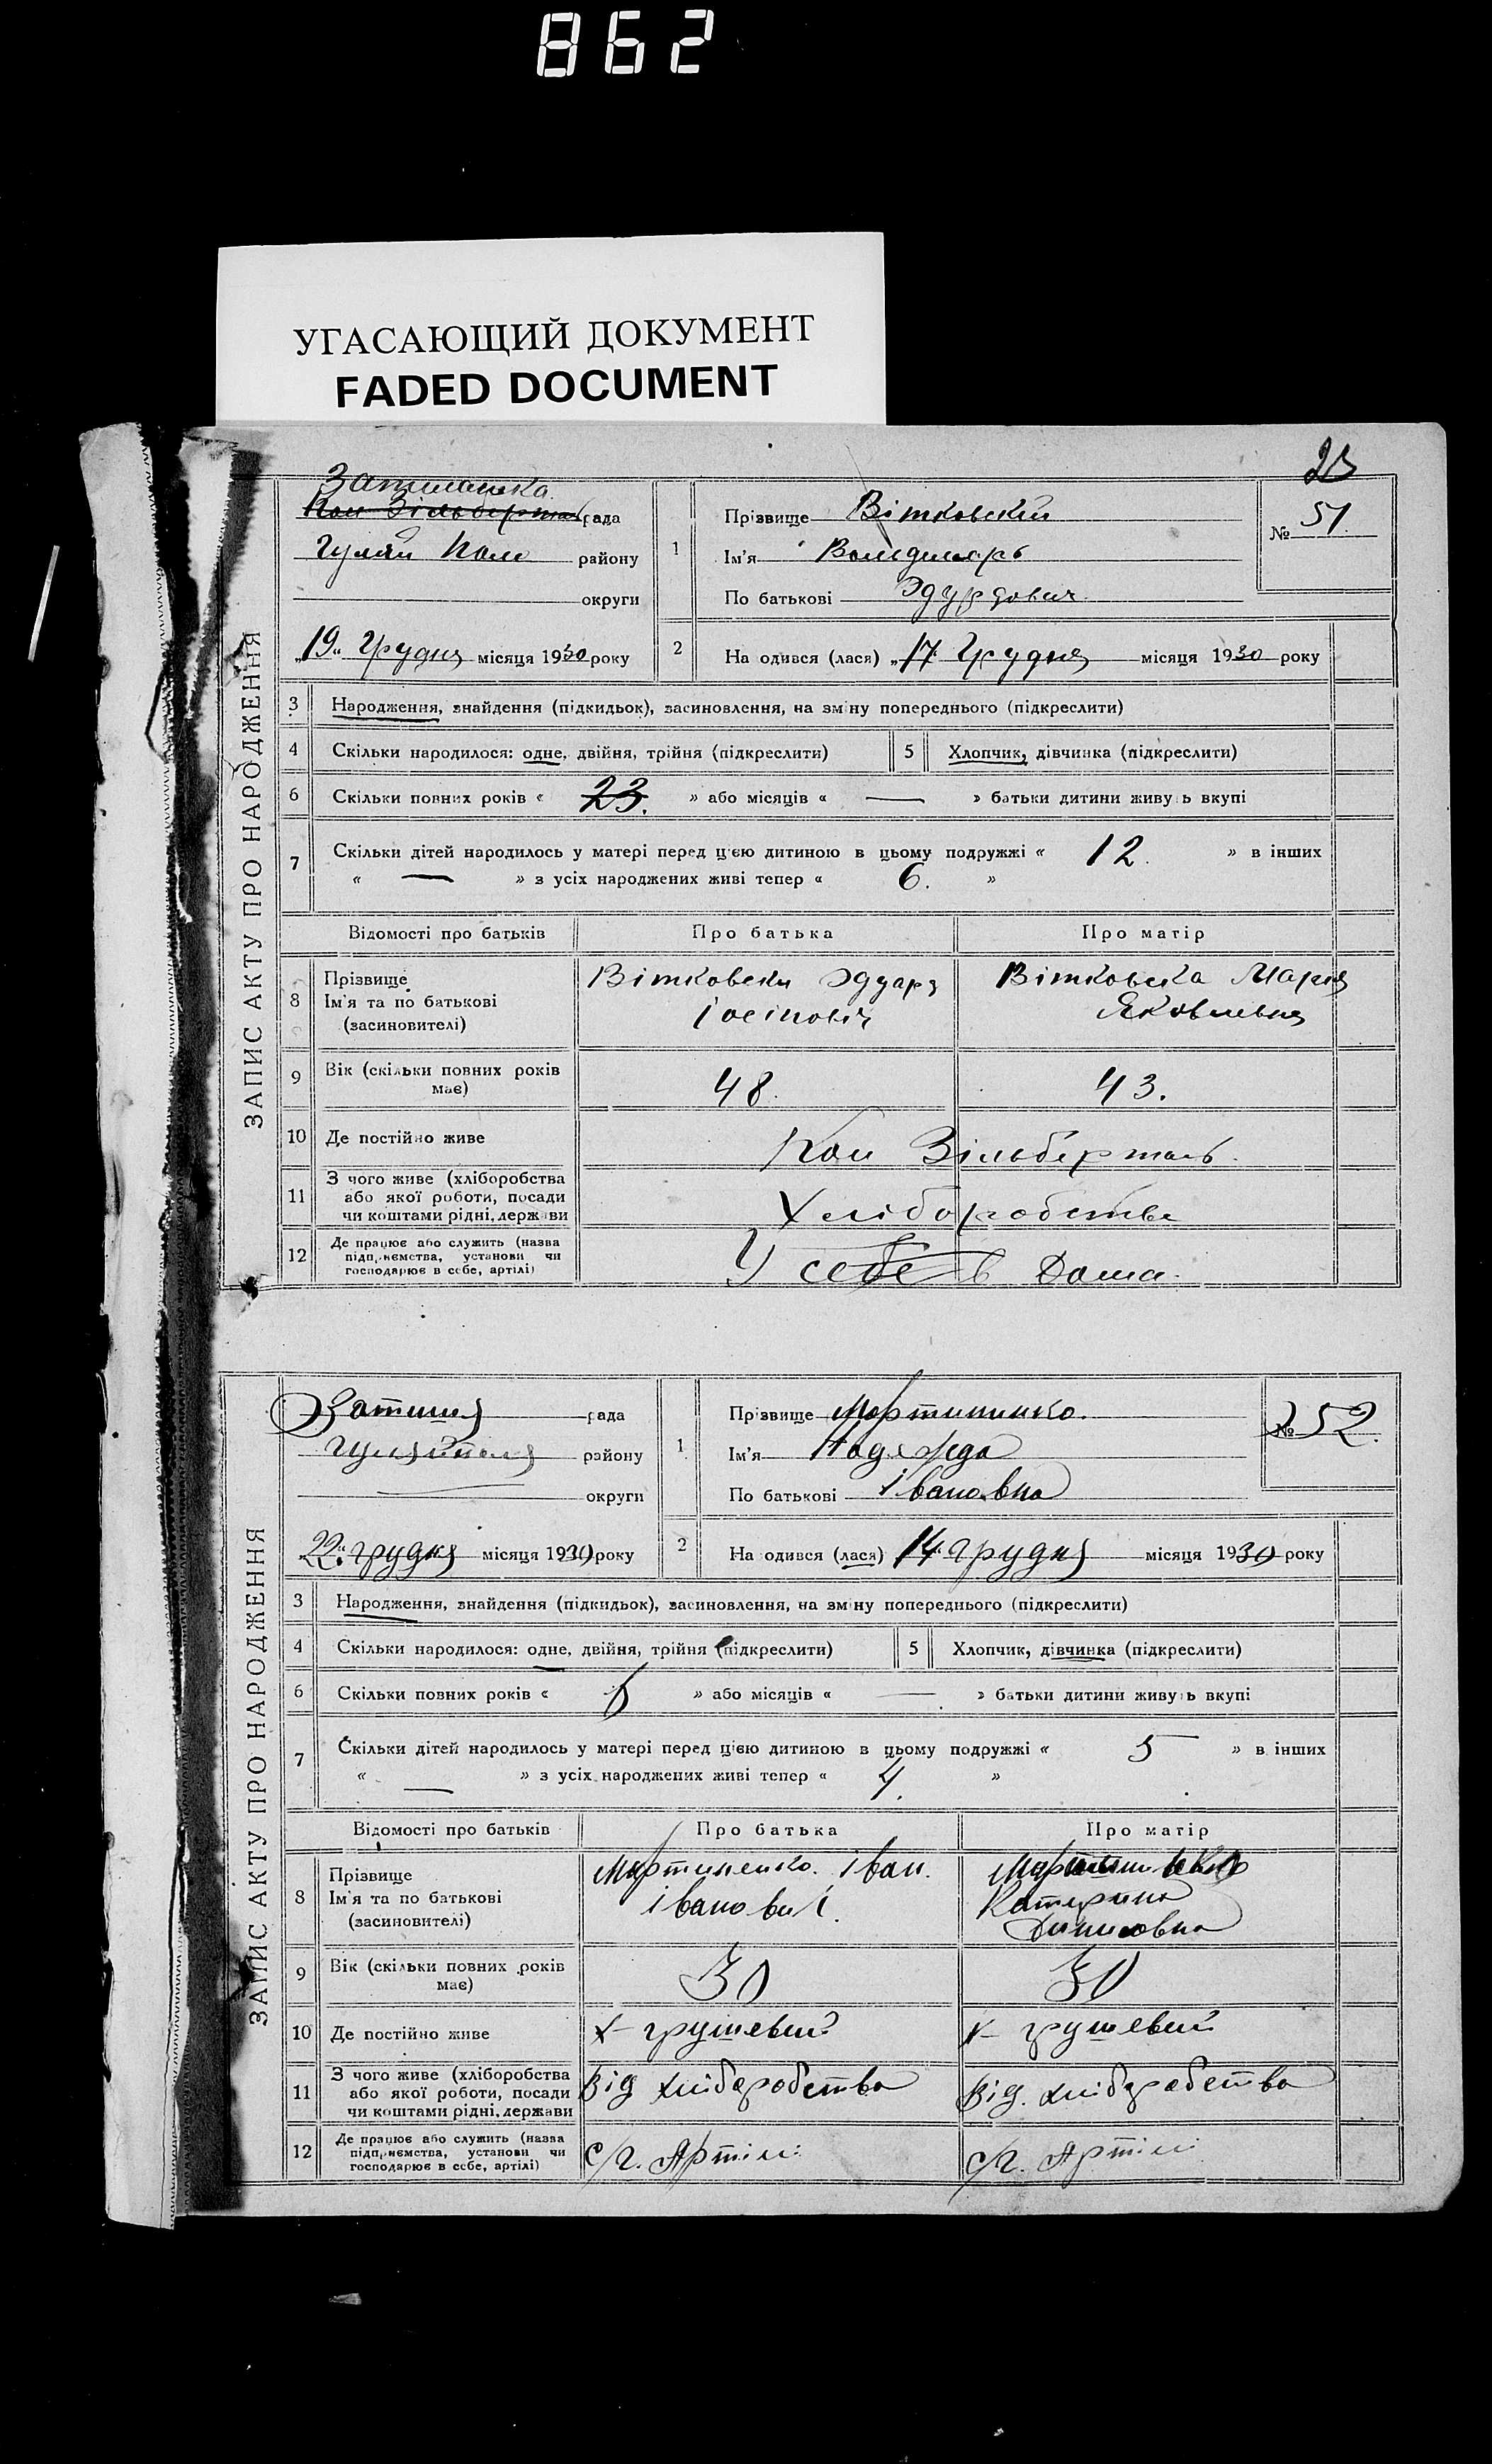 862
УГАСАЮЩИЙ ДОКУМЕНТ
FADED DOCUMENT
23
ЗАПИС АКТУ ПРО НАРОДЖЕННЯ
Затишанска
Кол Зільберталь рада
Гуляй Поле району
округи
„19“ Грудня місяця 1930 року
1
Прізвище Вітковский
Ім'я Волидимарь
По батькові Эдурдович
№ 51.
2 На одився (лася) „17“ Грудня місяця 1930 року
3 Народження, знайдення (підкидьок), засиновлення, на зміну попереднього (підкреслити)
4 Скільки народилося: одне, двійня, трійня (підкреслити) 5 Хлопчик, дівчинка (підкреслити)
6 Скільки повних років « 23. » або місяців « — » батьки дитини живуть вкупі
7 Скільки дітей народилось у матері перед цією дитиною в цьому подружжі « 12. » в інших
« — » з усіх народжених живі тепер « 6. »
Відомості про батьків Про батька Про матір
8 Прізвище
Ім'я та по батькові
(засиновителі)
Вітковски Эдуард
Іосіповіч
Вітковска Мария
Яковлевня
9 Вік (скільки повних років
має) 48. 43.
10 Де постійно живе Кол Зільберталь.
11 З чого живе (хліборобства
або якої роботи, посади
чи коштами рідні, держави
Хліборобства
12 Де працює або служить (назва
підприємства, установи чи
господарює в себе, артілі)
У себе в Дома.
ЗАПИС АКТУ ПРО НАРОДЖЕННЯ
Затишя рада
Гуляйполя району
округи
„22“ грудня місяця 1930 року
1
Прізвище Мартиненко.
Ім'я Надяжда
По батькові Івановна
№ 52.
2 На одився (лася) „14“ грудня місяця 1930 року
3 Народження, знайдення (підкидьок), засиновлення, на зміну попереднього (підкреслити)
4 Скільки народилося: одне, двійня, трійня (підкреслити) 5 Хлопчик, дівчинка (підкреслити)
6 Скільки повних років « » або місяців « — » батьки дитини живуть вкупі
7 Скільки дітей народилось у матері перед цією дитиною в цьому подружжі « 5 » в інших
« — » з усіх народжених живі тепер « 4. »
Відомості про батьків Про батька Про матір
8 Прізвище
Ім'я та по батькові
(засиновителі)
Мартиненко. Іван.
Іванович.
Мартиненко
Катерина
Динисовна
9 Вік (скільки повних років
має) 30 30
10 Де постійно живе х– грушевий х– грушевий
11 З чого живе (хліборобства
або якої роботи, посади
чи коштами рідні, держави
Від хліборобства Від. хліборобства
12 Де працює або служить (назва
підприємства, установи чи
господарює в себе, артілі)
с/г. Артілі с/г. Артілі